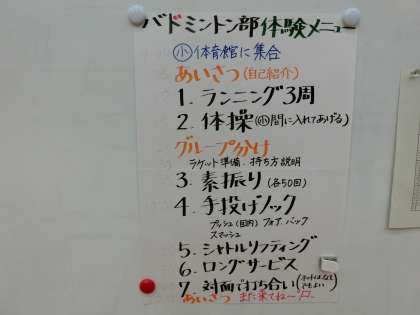 バドミントン部 体験メニュー
㋛体育館に集合
あいさつ(自己紹介)
1. ランニング3周
2. 体操(㋛間に入れてあげる)
グループ分け
ラケット準備・持ち方説明
3. 素振り(各50回)
4. 手投げノック
プッシュ(回内) フォア、バック
スマッシュ
5. シャトルリフティング
6. ロングサービス
7. 対面で打ち合い(ネットはなしでもよい)
あいさつ また来てね〜